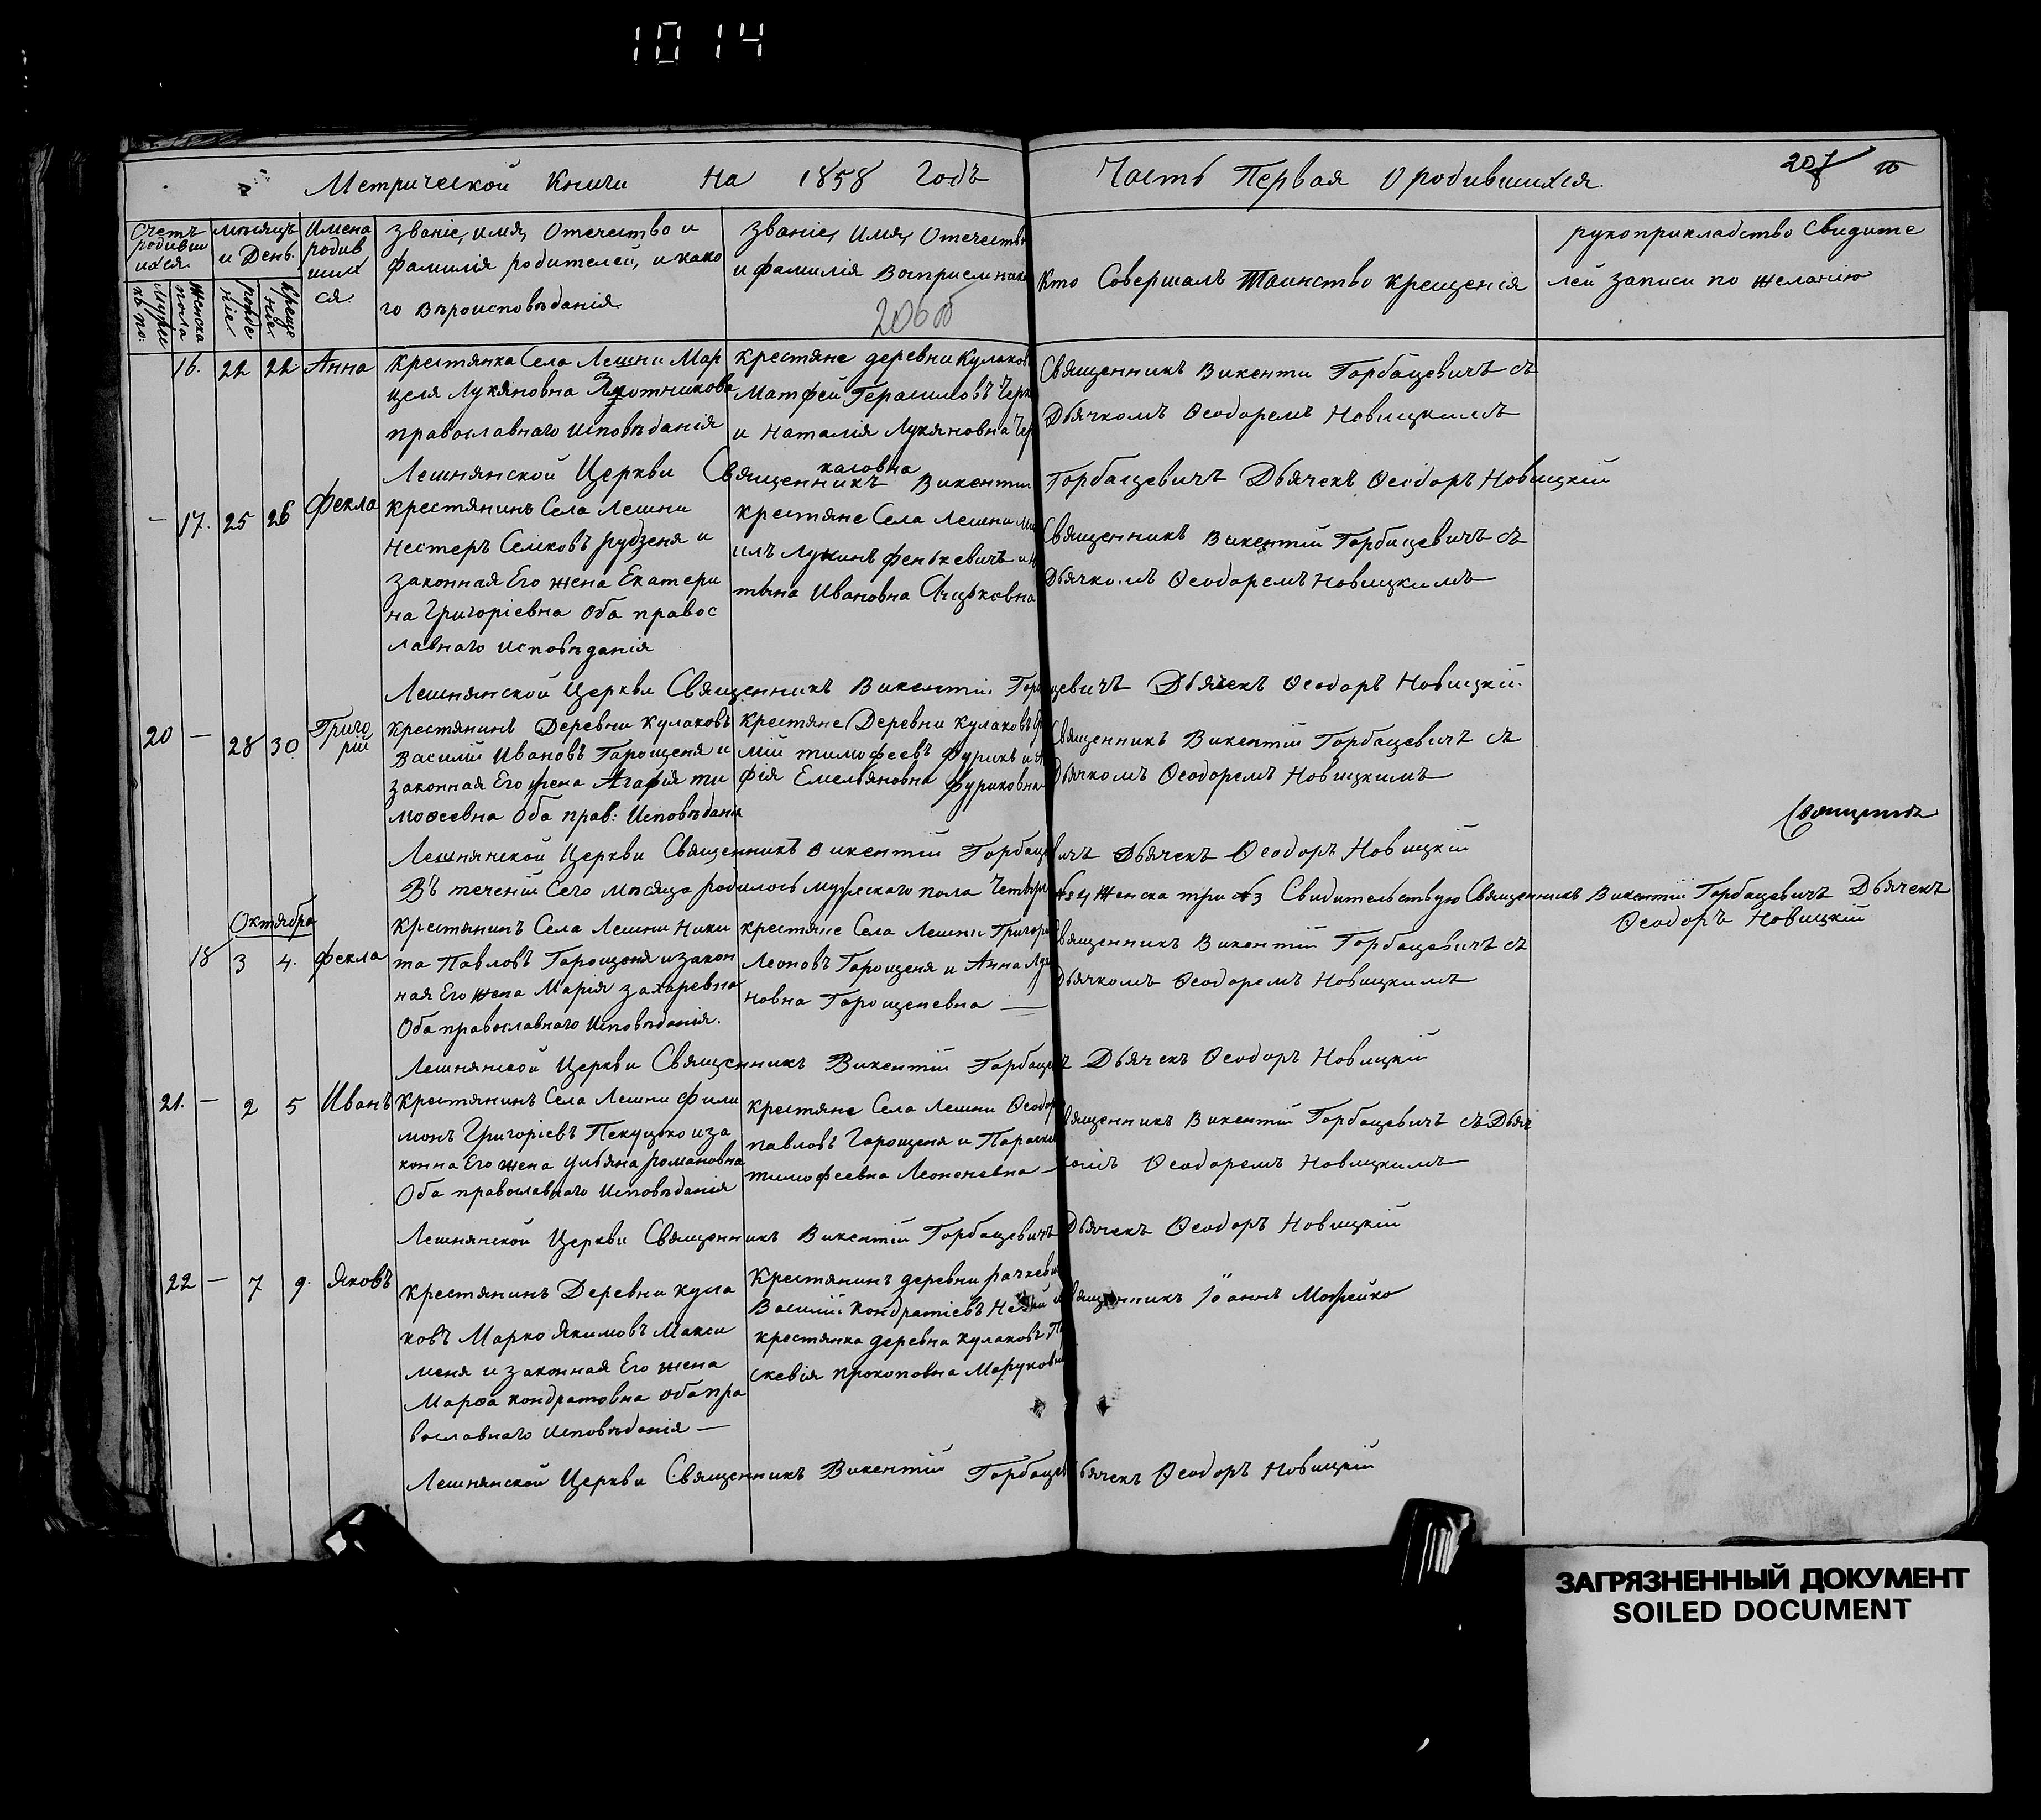 1014
Метрической Книги на 1858 Годъ
Часть Первая О родившихся.
207
Счетъ родивши ихся.
мѣсяцъ и День.
Имена родив шихся.
званіе, имя, Отечество и фамилія родителей, и како го вѣроисповѣданія.
званіе, Имя, Отечество и фамилія Восприемнико
206 об
Кто Совершалъ Таинство крещенія
рукоприкладство Свидите лей записи по желанію
мужес къ по:
женска пола
рожде ніе.
креще ніе.
16. 22 22 Анна
крестянка Села Лешни Мар
целя Лукяновна
православнаго исповѣданія
крестяне деревни Кулаков
Матфей Герасимовъ Черк
и Наталія Лукяновна Чер
каговна
Священникъ Викенти Горбацевичъ съ
Дьячкомъ Ѳеодоремъ Новицкимъ
Лешнянской Церкви Священникъ Викентій Горбацевичъ Дьячекъ Ѳеодоръ Новицкій
– 17. 25 26 Фекла
крестянинъ Села Лешни
Нестеръ Семковъ рудзеня и
законная Его жена Екатери
на Григоріевна Оба правос
лавнаго исповѣданія
крестяне Села Лешни Ми
илъ Лукинъ фенькевичъ и
тьяна Ивановна
Священникъ Викентій Горбацевичъ съ
Дьячкомъ Ѳеодоремъ Новицкимъ
Лешнянской Церкви Священникъ Викентій Горбацевичъ Дьячекъ Ѳеодоръ Новицкій.
20 – 28 30. Григо рій
крестянинъ Деревни кулаковъ
Василій Ивановъ Гарощеня и
законная Его жена Агафія ти
моѳеевна Оба прав: Исповѣданія
крестяне Деревни кулаковъ
мій тимофеевъ Фурикъ и
фія Емельяновна Фуриковна
Священникъ Викентій Горбацевичъ съ
Дьячкомъ Ѳеодоремъ Новицкимъ
Священникъ
Лешнянской Церкви Священникъ Викентій Горбацевичъ Дьячекъ Ѳеодоръ Новицкій
Въ теченіи Сего мѣсяца родилось мужескаго пола Четвер №4 Женска три №3 Свидительствую Священникъ Викентій Горбацевичъ Дьячекъ
Ѳеодоръ Новицкій
Октября
18 3 4. Фекла
крестянинъ Села Лешни Ники
та Павловъ Горощеня и закон
ная Его жена Марія захаревна
Оба православнаго Исповѣданія.
крестяне Села Лешни Григори
Леоновъ Горощеня и Анна
новна Горощеневна —
Священникъ Викентій Горбацевичъ съ
Дьячкомъ Ѳеодоремъ Новицкимъ
Лешнянской Церкви Священникъ Викентій Горбацевичъ Дьячекъ Ѳеодоръ Новицкій
21. – 2 5 Иванъ
Крестянинъ Села Лешни Фили
монъ Григоріевъ Пекуцько и за
конна Его жена Ульяна романовна
Оба православнаго Исповѣданія
крестяне Села Лешни Ѳеодор
павловъ Горощеня и Параске
тимофеевна Леоненевна —
Священникъ Викентій Горбацевичъ съ Дьяч
комъ Ѳеодоремъ Новицкимъ
Лешнянской Церкви Священникъ Викентій Горбацевичъ Дьячекъ Ѳеодоръ Новицкій
22 – 7 9. Яковъ
Крестянинъ Деревни кула
ковъ Марко Якимовъ Макси
меня и законная Его жена
Марѳа кондратовна оба пра
вославнаго исповѣданія —
Крестянинъ деревни рачкеви
Василій Кондратіевъ
крестянка деревна кулаковъ Па
скевія прокоповна Маруковна
Священникъ Іоаннъ Можейко
Лешнянской Церкви Священникъ Викентій Горбацев Дьячекъ Ѳеодоръ Новицкій
ЗАГРЯЗНЕННЫЙ ДОКУМЕНТ
SOILED DOCUMENT